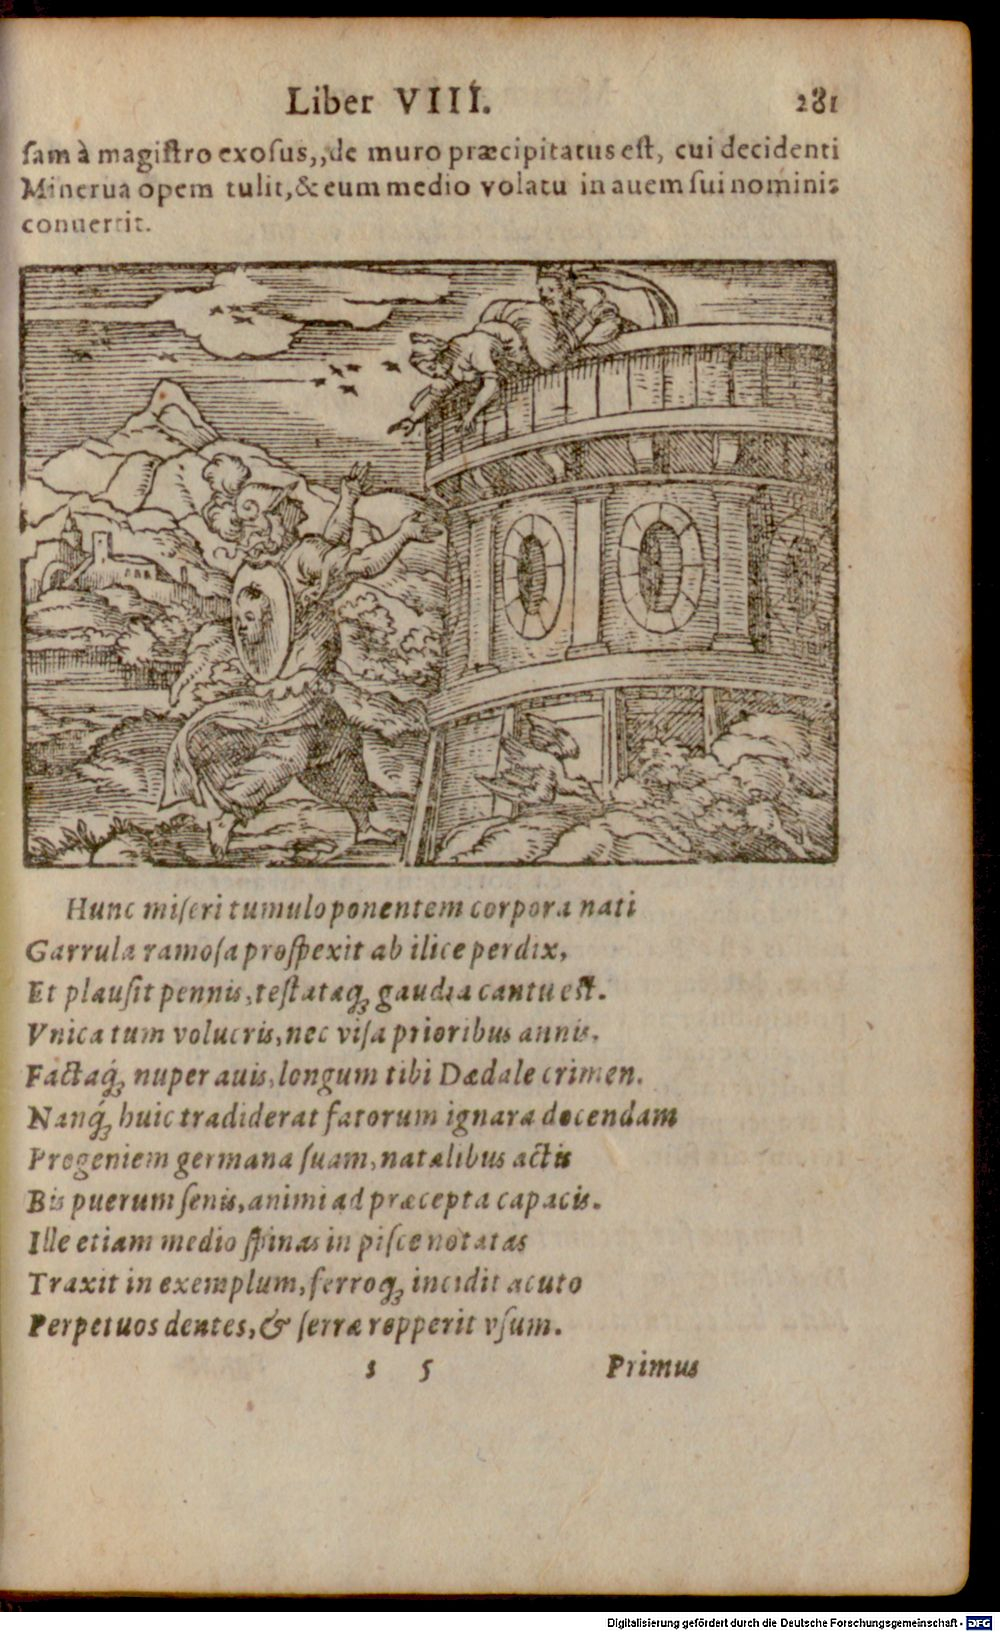 Liber VIII. 281
ſam à magiſtro exoſus,,de muro præcipitatus eſt, cui decidenti
Minerua opem tulit,& eum medio volatu in auem ſui nominis
conuertit.
Hunc miſeri tumulo ponentem corpora nati
Garrula ramoſa proſpexit ab ilice perdix,
Et plauſit pennis, teſtataq́; gaudia cantu eſt.
Vnica tum volucris, nec viſa prioribus annis,
Factaq́; nuper auis, longum tibi Dædale crimen.
Nanq́; huic tradiderat fatorum ignara docendam
Progeniem germana ſuam, natalibus actis
Bis puerum ſenis, animi ad præcepta capacis.
Ille etiam medio ſpinas in piſce notatas
Traxit in exemplum, ferroq; incidit acuto
Perpetuos dentes, & ſerræ repperit vſum.
s 5 Primus
Digitalisierung gefördert durch die Deutsche Forschungsgemeinschaft - DFG